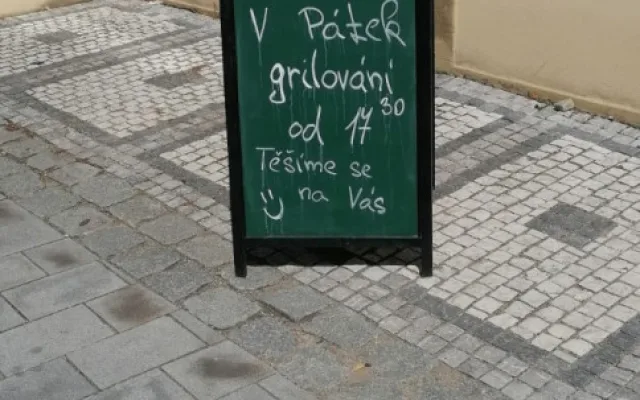 V Pátek
grilování
od 17 30
Těšíme se
na Vás